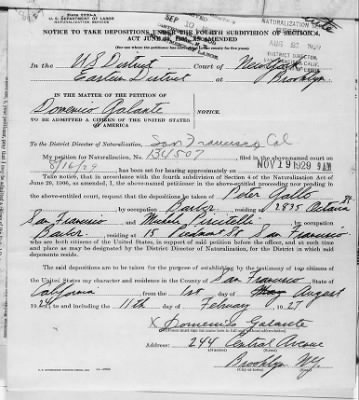 Form 2227-A
U. S. DEPARTMENT OF LABOR
NATURALIZATION SERVICE
SEP 10
NATURALIZATION
AUG 1929
DISTRICT DIRECTOR
NOTICE TO TAKE DEPOSITIONS UNDER THE FOURTH SUBDIVISION OF SECTION 4,
ACT JUNE 29, 1906, AS AMENDED
In the U S District Court of New York
Eastern District at Brooklyn
IN THE MATTER OF THE PETITION OF
Domenico Galante NOTICE.
TO BE ADMITTED A CITIZEN OF THE UNITED STATES
OF AMERICA
To the District Director of Naturalization, San Francisco Cal
My petition for Naturalization, No. 134507 filed in the above-named court on
8/16/29 has been set for hearing approximately on NOV 19 1929 9 AM
Take notice, that in accordance with the fourth subdivision of section 4 of the Naturalization Act of
June 29, 1906, as amended, I, the above-named petitioner in the above-entitled proceeding now pending in
the above-entitled court, request that the depositions be taken of Peter Gatto
by occupation Barber residing at 2835 Octavia St
San Francisco and by occupation
Barber, residing at 15 Piedmont St San Francisco
who are both citizens of the United States, in support of said petition before the officer, and at such time
and place as may be designated by the District Director of Naturalization, for the District in which said
deponents reside.
The said depositions are to be taken for the purpose of establishing by the testimony of two citizens of
the United States my character and residence in the County of San Francisco, State of
California from the 1st day of August
1924, to and including the 11th day of February, 1927
x Domenico Galante
Address: 244 Central Avenue
Brooklyn N.Y.